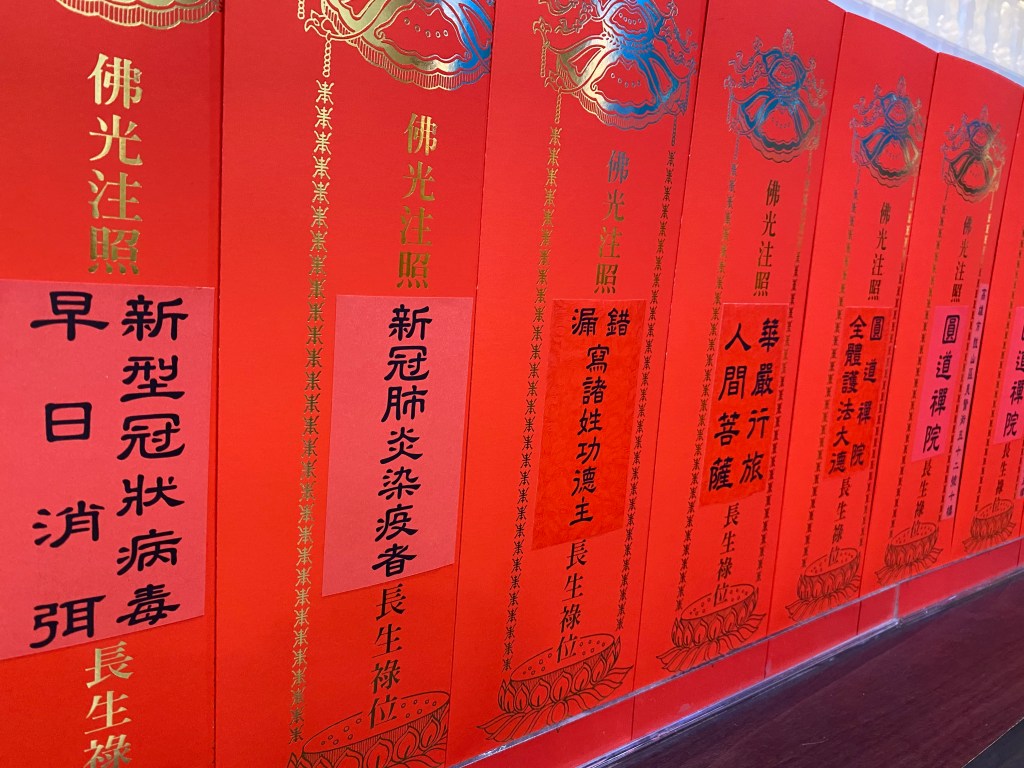 佛光注照
新型冠狀病毒
早日消弭
長生祿
佛光注照
新冠肺炎染疫者
長生祿位
佛光注照
錯
漏寫諸姓功德主
長生祿位
佛光注照
華嚴行旅
人間菩薩
長生祿位
佛光注照
圓道禪院
全體護法大德
長生祿位
佛光注照
圓道禪院
長生祿位
道禪院
長生祿